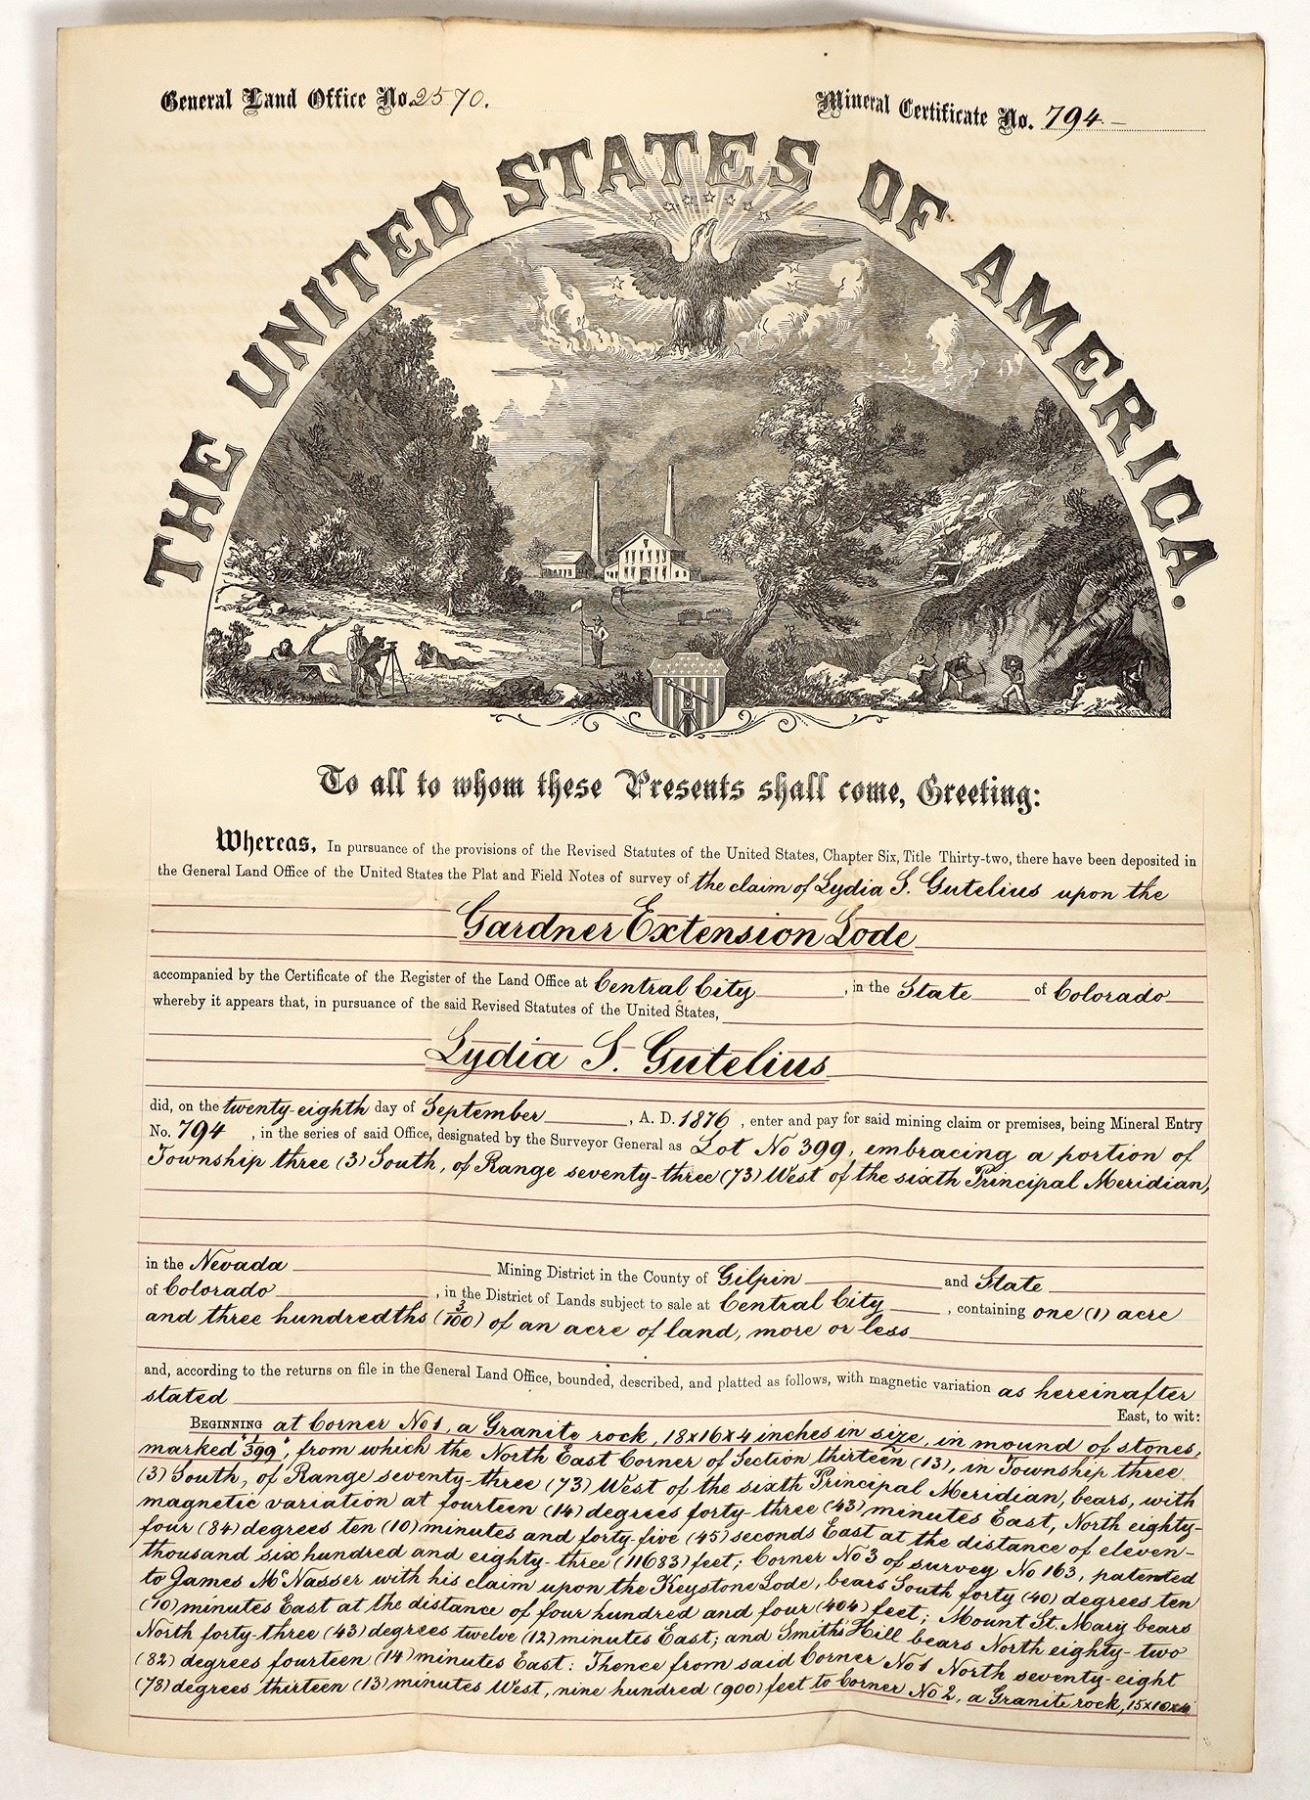 General Land Office No. 2570.
Mineral Certificate No. 794
THE UNITED STATES OF AMERICA.
To all to whom these Presents shall come, Greeting:
Whereas, In pursuance of the provisions of the Revised Statutes of the United States, Chapter Six, Title Thirty-two, there have been deposited in
the General Land Office of the United States the Plat and Field Notes of survey of the claim of Lydia S. Gutelius upon the
Gardner Extension Lode
accompanied by the Certificate of the Register of the Land Office at Central City, in the State of Colorado
whereby it appears that, in pursuance of the said Revised Statutes of the United States,
Lydia S. Gutelius
did, on the twenty-eighth day of September, A. D. 1876, enter and pay for said mining claim or premises, being Mineral Entry
No. 794, in the series of said Office, designated by the Surveyor General as Lot No 399, embracing a portion of
Township three (3) South, of Range seventy-three (73) West of the sixth Principal Meridian,
in the Nevada Mining District in the County of Gilpin and State
of Colorado, in the District of Lands subject to sale at Central City, containing one (1) acre
and three hundredths (3/100) of an acre of land, more or less
and, according to the returns on file in the General Land Office, bounded, described, and platted as follows, with magnetic variation as hereinafter
stated East, to wit:
BEGINNING at Corner No 1, a Granite rock, 18x16x4 inches in size, in mound of stones,
marked "1/399", from which the North East Corner of Section thirteen (13), in Township three
(3) South, of Range seventy-three (73) West of the sixth Principal Meridian, bears, with
magnetic variation at fourteen (14) degrees forty-three (43) minutes East, North eighty-
four (84) degrees ten (10) minutes and forty-five (45) seconds East at the distance of eleven-
thousand six hundred and eighty-three (11683) feet; Corner No 3 of survey No 163, patented
to James McNasser with his claim upon the Keystone Lode, bears South forty (40) degrees ten
(10) minutes East at the distance of four hundred and four (404) feet; Mount St. Mary bears
North forty-three (43) degrees twelve (12) minutes East; and Smith's Hill bears North eighty-two
(82) degrees fourteen (14) minutes East: Thence from said Corner No 1 North seventy-eight
(78) degrees thirteen (13) minutes West, nine hundred (900) feet to Corner No 2, a Granite rock, 15x10x4